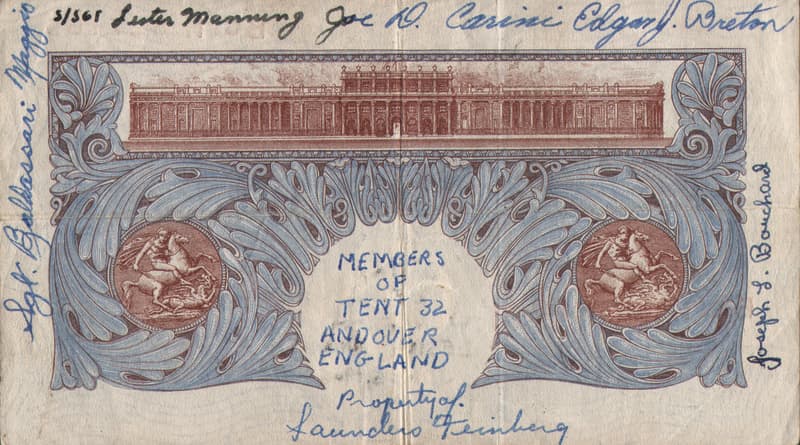 S/SGT Lester Manning Joe D. Carini Edgar J. Breton
Sgt. Baldassari Maggio
Joseph L. Bouchard
MEMBERS
OF
TENT 32
ANDOVER
ENGLAND
Property of
Saunders Feinberg